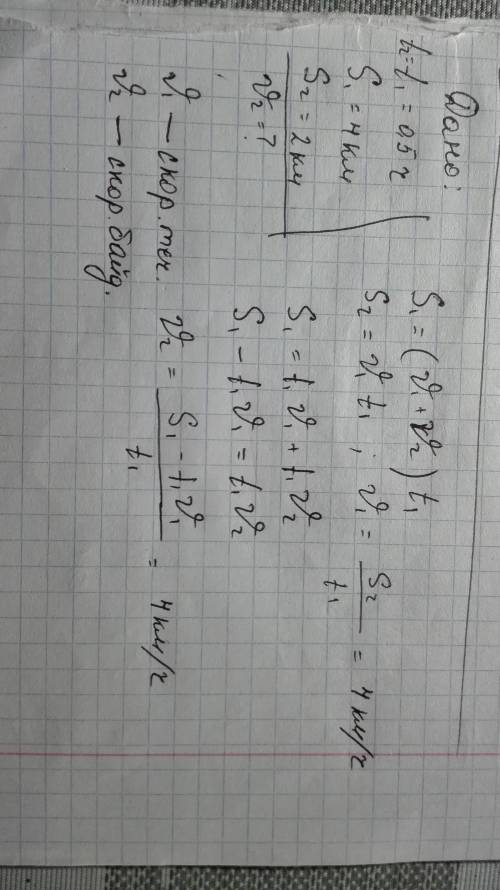 Дано:
t₂=t₁ = 0,5 ч
S₁ = 4 км
S₂ = 2 км
υ₂ = ?
υ₁ — скор. теч.
υ₂ — скор. байд.
S₁ = (υ₁ + υ₂) t₁
S₂ = υ₁ t₁ ; υ₁ = S₂/t₁ = 4 км/ч
S₁ = t₁υ₁ + t₁υ₂
S₁ − t₁υ₁ = t₁υ₂
υ₂ = (S₁ − t₁υ₁)/t₁ = 4 км/ч